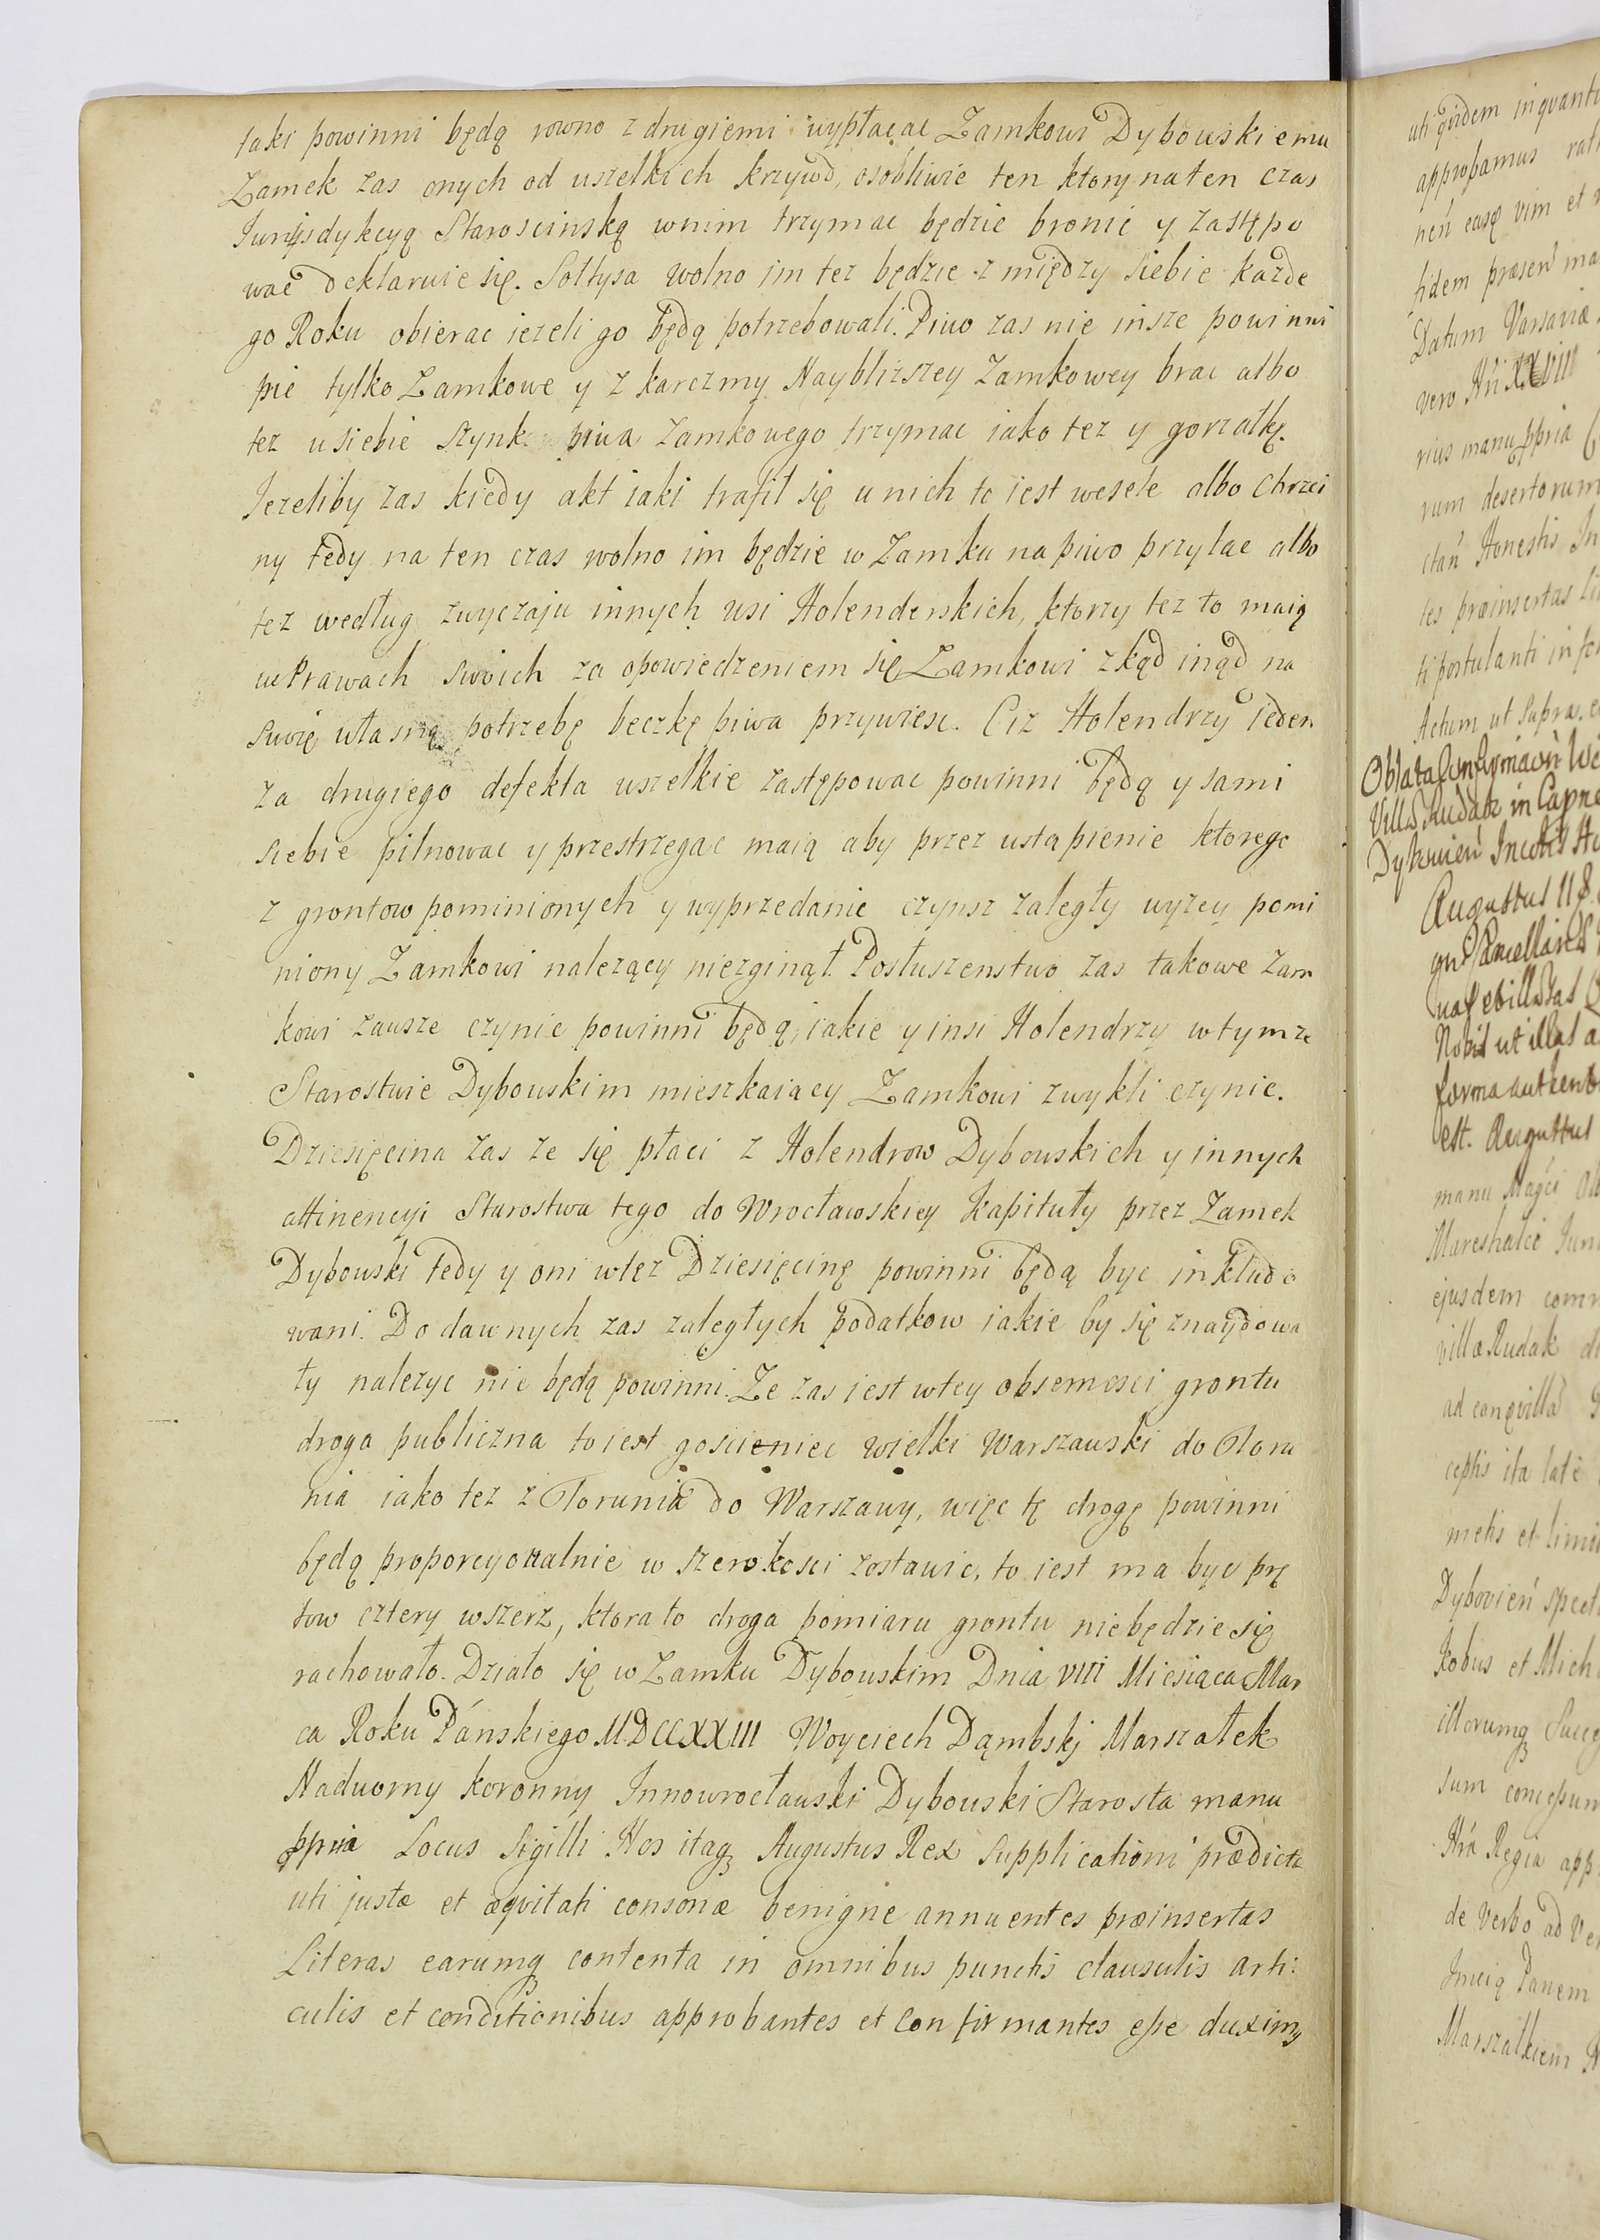 taki powinni będą rowno z drugiemi wypłacac Zamkowi Dybowskiemu
Zamek zas onych od wszelkich krzywd, osobliwie ten ktory na ten czas
Jurysdykcyą Staroscinską w nim trzymac będzie bronic y zastępo
wac deklaruie się. Sołtysa wolno im tez będzie z między siebie kazde
go Roku obierac iezeli go będą potrzebowali. Piwo zas nie insze powinni
pic tylko Zamkowe y z karczmy Nayblizszey Zamkowey brac albo
tez u siebie szynk piwa Zamkowego trzymac iako tez y gorzałkę.
Jezeliby zas kiedy akt iaki trafił się u nich to iest wesele albo Chrzci
ny tedy na ten czas wolno im będzie w Zamku na piwo przyłac albo
tez według zwyczaju innych wsi Holenderskich, ktorzy tez to maią
w Prawach swoich za opowiedzeniem się Zamkowi zkąd inąd na
swoię własną potrzebę beczkę piwa przywiesc. Ciz Holendrzy ieden
za drugiego defekta wszelkie zastępowac powinni będą y sami
siebie pilnowac y przestrzegac maią aby przez ustapienie ktorego
z grontow pominionych y wyprzedanie czynsz zaległy wyzey pomi
niony Zamkowi nalezący niezginął. Posłuszenstwo zas takowe Zam
kowi zawsze czynic powinni będą, iakie y insi Holendrzy w tymze
Starostwie Dybowskim mieszkaiący Zamkowi zwykli czynic.
Dziesięcina zas ze się płaci z Holendrow Dybowskich y innych
attinencyi Starostwa tego do Wrocławskiey Kapituły przez Zamek
Dybowski tedy y oni w tęz Dziesięcinę powinni będą byc inkludo
wani. Do dawnych zas zaległych podatkow iakie by się znaydowa
ły nalezyc nie będą powinni. Ze zas iest w tey obsernosci grontu
droga publiczna to iest goscieniec wielki Warszawski do Toru
nia iako tez z Torunia do Warszawy, więc tę drogę powinni
będą proporcyonalnie w szerokosci zostawic, to iest ma byc prę
tow cztery wszerz, ktora to droga pomiaru grontu nie będzie się
rachowało. Działo się w Zamku Dybowskim Dnia VIII Miesiąca Mar
ca Roku Pánskiego MDCCXXIII Woyciech Dąmbskj Marszałek
Nadworny koronny Innowrocławski Dybowski Starosta manu
ppria Locus Sigilli Nos itaq Augustus Rex Supplicationi prædictæ
uti justæ et æqvitati consonæ benigne annuentes præinsertas
Literas earumq contenta in omnibus punctis clausulis arti:
culis et conditionibus approbantes et Confirmantes eße duximq
uti qvidem inqvantu
approbamus rati
nen easq vim et
fidem præsen ma
Datum Varsaviæ
vero
rius manu ppria
rum desertorum
ctan Honestis In
tes præinsertas Li
ti postulanti in
Actum ut supra.
Oblata Confirmaon
Villa Rudak in Cap
Dybovien Incolis
Augustus II
Nobis ut illas a
forma authent
est. Augustus
manu
Mareshalci
ejusdem comm
villæ Rudak de
ad eanqvilla
ceptis ita late
metis et limi
Dybovien spect
Kobus et Mich
illorumq Succe
sum conceßum
Nra Regia app
de Verbo ad Ver
Panem
Marszalkiem N